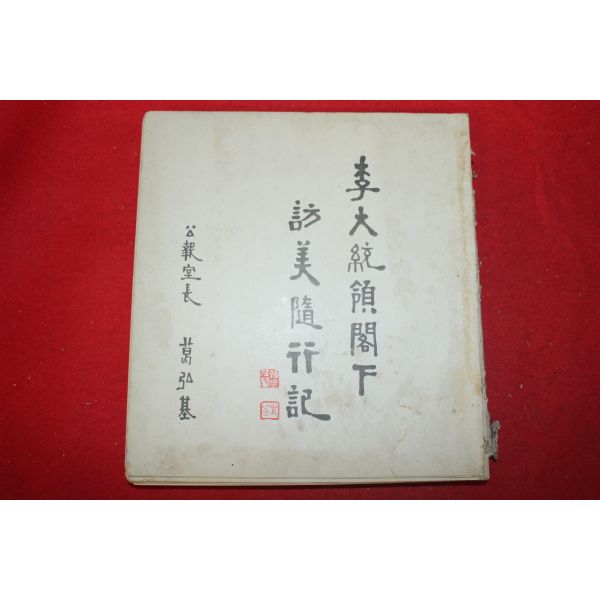 李大統領閣下
訪美隨行記
公報室長 葛弘基